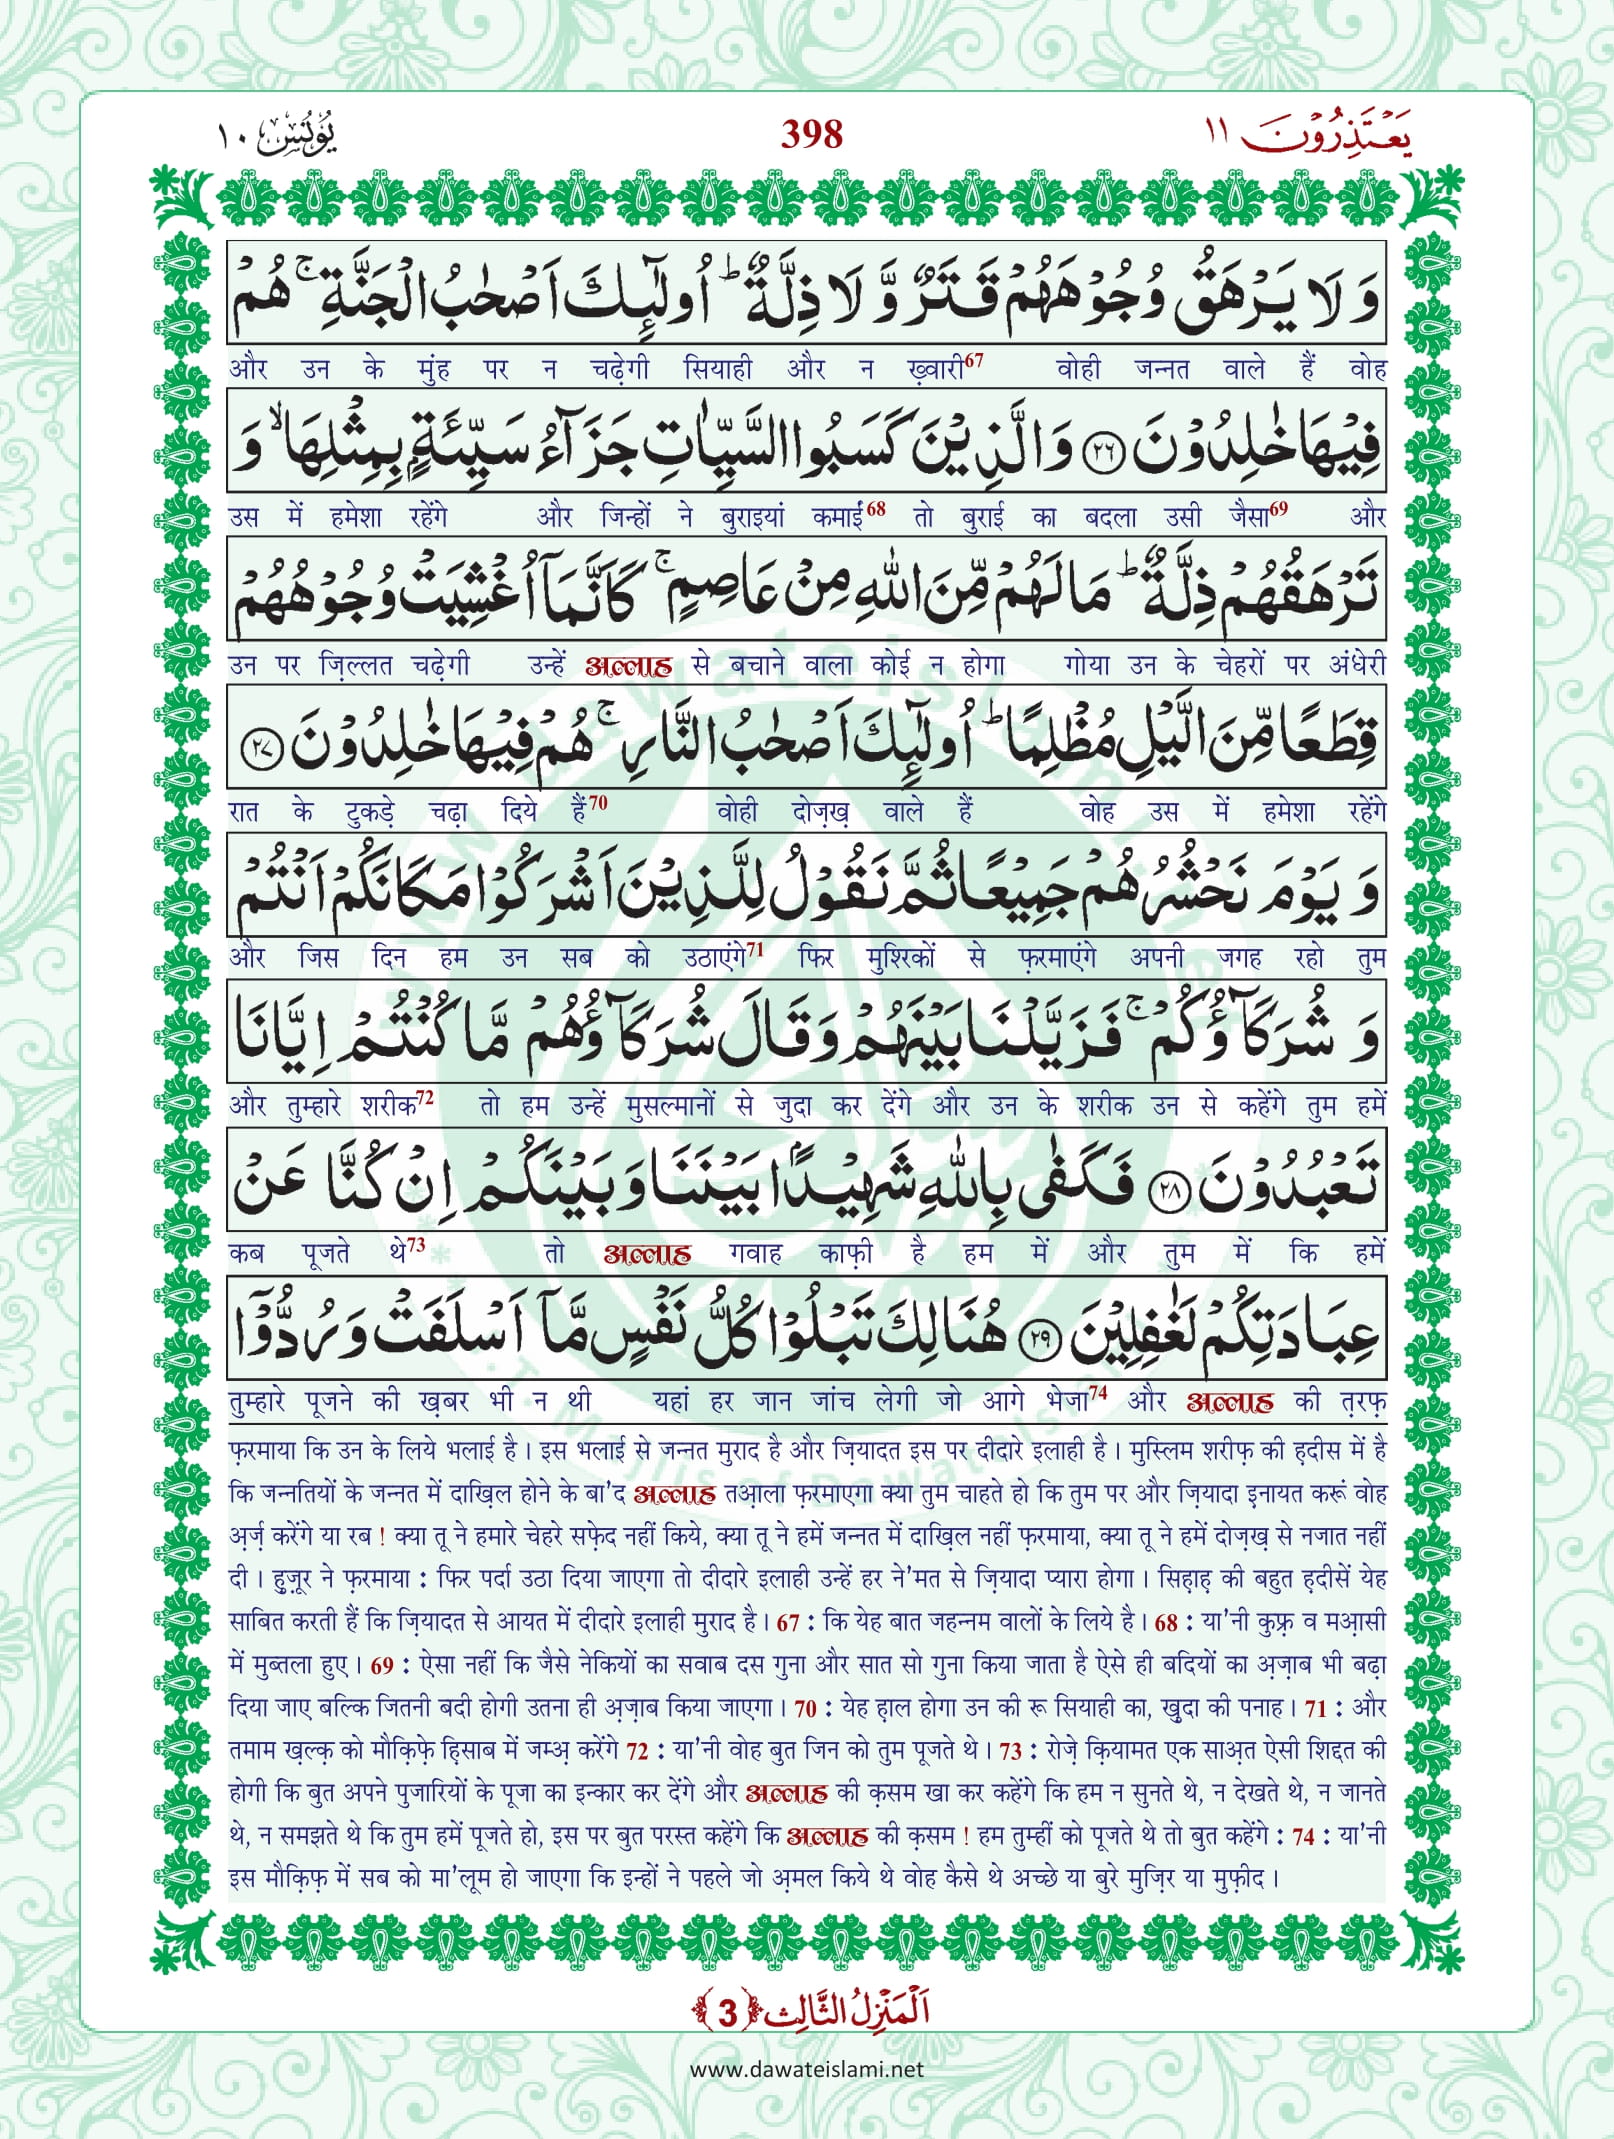 يَعْتَذِرُوْنَ ١١
398
يُوْنُس ١٠
وَ لَا يَرْهَقُ وُجُوْهَهُمْ قَتَرٌ وَّ لَا ذِلَّةٌ ؕ اُولٰٓىِٕكَ اَصْحٰبُ الْجَنَّةِ ۚ هُمْ
और उन के मुंह पर न चढ़ेगी सियाही और न ख़्वारी67 वोही जन्नत वाले हैं वोह
فِیْهَا خٰلِدُوْنَ ﴿۲۶﴾ وَ الَّذِیْنَ كَسَبُوا السَّیِّاٰتِ جَزَآءُ سَیِّئَةٍۭ بِمِثْلِهَا ۙ وَ
उस में हमेशा रहेंगे और जिन्हों ने बुराइयां कमाईं68 तो बुराई का बदला उसी जैसा69 और
تَرْهَقُهُمْ ذِلَّةٌ ؕ مَا لَهُمْ مِّنَ اللّٰهِ مِنْ عَاصِمٍ ۚ كَاَنَّمَاۤ اُغْشِیَتْ وُجُوْهُهُمْ
उन पर ज़िल्लत चढ़ेगी उन्हें अल्लाह से बचाने वाला कोई न होगा गोया उन के चेहरों पर अंधेरी
قِطَعًا مِّنَ الَّیْلِ مُظْلِمًا ؕ اُولٰٓىِٕكَ اَصْحٰبُ النَّارِ ۚ هُمْ فِیْهَا خٰلِدُوْنَ ﴿۲۷﴾
रात के टुकड़े चढ़ा दिये हैं70 वोही दोज़ख़ वाले हैं वोह उस में हमेशा रहेंगे
وَ یَوْمَ نَحْشُرُهُمْ جَمِیْعًا ثُمَّ نَقُوْلُ لِلَّذِیْنَ اَشْرَكُوْا مَكَانَكُمْ اَنْتُمْ
और जिस दिन हम उन सब को उठाएंगे71 फिर मुश्रिकों से फ़रमाएंगे अपनी जगह रहो तुम
وَ شُرَكَآؤُكُمْ ۚ فَزَیَّلْنَا بَیْنَهُمْ وَ قَالَ شُرَكَآؤُهُمْ مَّا كُنْتُمْ اِیَّانَا
और तुम्हारे शरीक72 तो हम उन्हें मुसल्मानों से जुदा कर देंगे और उन के शरीक उन से कहेंगे तुम हमें
تَعْبُدُوْنَ ﴿۲۸﴾ فَكَفٰی بِاللّٰهِ شَهِیْدًۢا بَیْنَنَا وَ بَیْنَكُمْ اِنْ كُنَّا عَنْ
कब पूजते थे73 तो अल्लाह गवाह काफ़ी है हम में और तुम में कि हमें
عِبَادَتِكُمْ لَغٰفِلِیْنَ ﴿۲۹﴾ هُنَالِكَ تَبْلُوْا كُلُّ نَفْسٍ مَّاۤ اَسْلَفَتْ وَ رُدُّوْۤا
तुम्हारे पूजने की ख़बर भी न थी यहां हर जान जांच लेगी जो आगे भेजा74 और अल्लाह की त़रफ़
फ़रमाया कि उन के लिये भलाई है। इस भलाई से जन्नत मुराद है और ज़ियादत इस पर दीदारे इलाही है। मुस्लिम शरीफ़ की ह़दीस में है
कि जन्नतियों के जन्नत में दाख़िल होने के बा'द अल्लाह तआ़ला फ़रमाएगा क्या तुम चाहते हो कि तुम पर और ज़ियादा इनायत करूं वोह
अ़र्ज़ करेंगे या रब ! क्या तू ने हमारे चेहरे सफ़ेद नहीं किये, क्या तू ने हमें जन्नत में दाख़िल नहीं फ़रमाया, क्या तू ने हमें दोज़ख़ से नजात नहीं
दी। हुज़ूर ने फ़रमाया : फिर पर्दा उठा दिया जाएगा तो दीदारे इलाही उन्हें हर ने'मत से ज़ियादा प्यारा होगा। सिह़ाह़ की बहुत ह़दीसें येह
साबित करती हैं कि ज़ियादत से आयत में दीदारे इलाही मुराद है। 67 : कि येह बात जहन्नम वालों के लिये है। 68 : या'नी कुफ़्र व मआ़सी
में मुब्तला हुए। 69 : ऐसा नहीं कि जैसे नेकियों का सवाब दस गुना और सात सो गुना किया जाता है ऐसे ही बदियों का अ़ज़ाब भी बढ़ा
दिया जाए बल्कि जितनी बदी होगी उतना ही अ़ज़ाब किया जाएगा। 70 : येह ह़ाल होगा उन की रू सियाही का, ख़ुदा की पनाह। 71 : और
तमाम ख़ल्क़ को मौक़िफ़े ह़िसाब में जम्अ़ करेंगे 72 : या'नी वोह बुत जिन को तुम पूजते थे। 73 : रोज़े क़ियामत एक साअ़त ऐसी शिद्दत की
होगी कि बुत अपने पुजारियों के पूजा का इन्कार कर देंगे और अल्लाह की क़सम खा कर कहेंगे कि हम न सुनते थे, न देखते थे, न जानते
थे, न समझते थे कि तुम हमें पूजते हो, इस पर बुत परस्त कहेंगे कि अल्लाह की क़सम ! हम तुम्हीं को पूजते थे तो बुत कहेंगे : 74 : या'नी
इस मौक़िफ़ में सब को मा'लूम हो जाएगा कि इन्हों ने पहले जो अ़मल किये थे वोह कैसे थे अच्छे या बुरे मुज़िर या मुफ़ीद।
اَلْمَنْزِلُ الثَّالِث ﴿3﴾
www.dawateislami.net